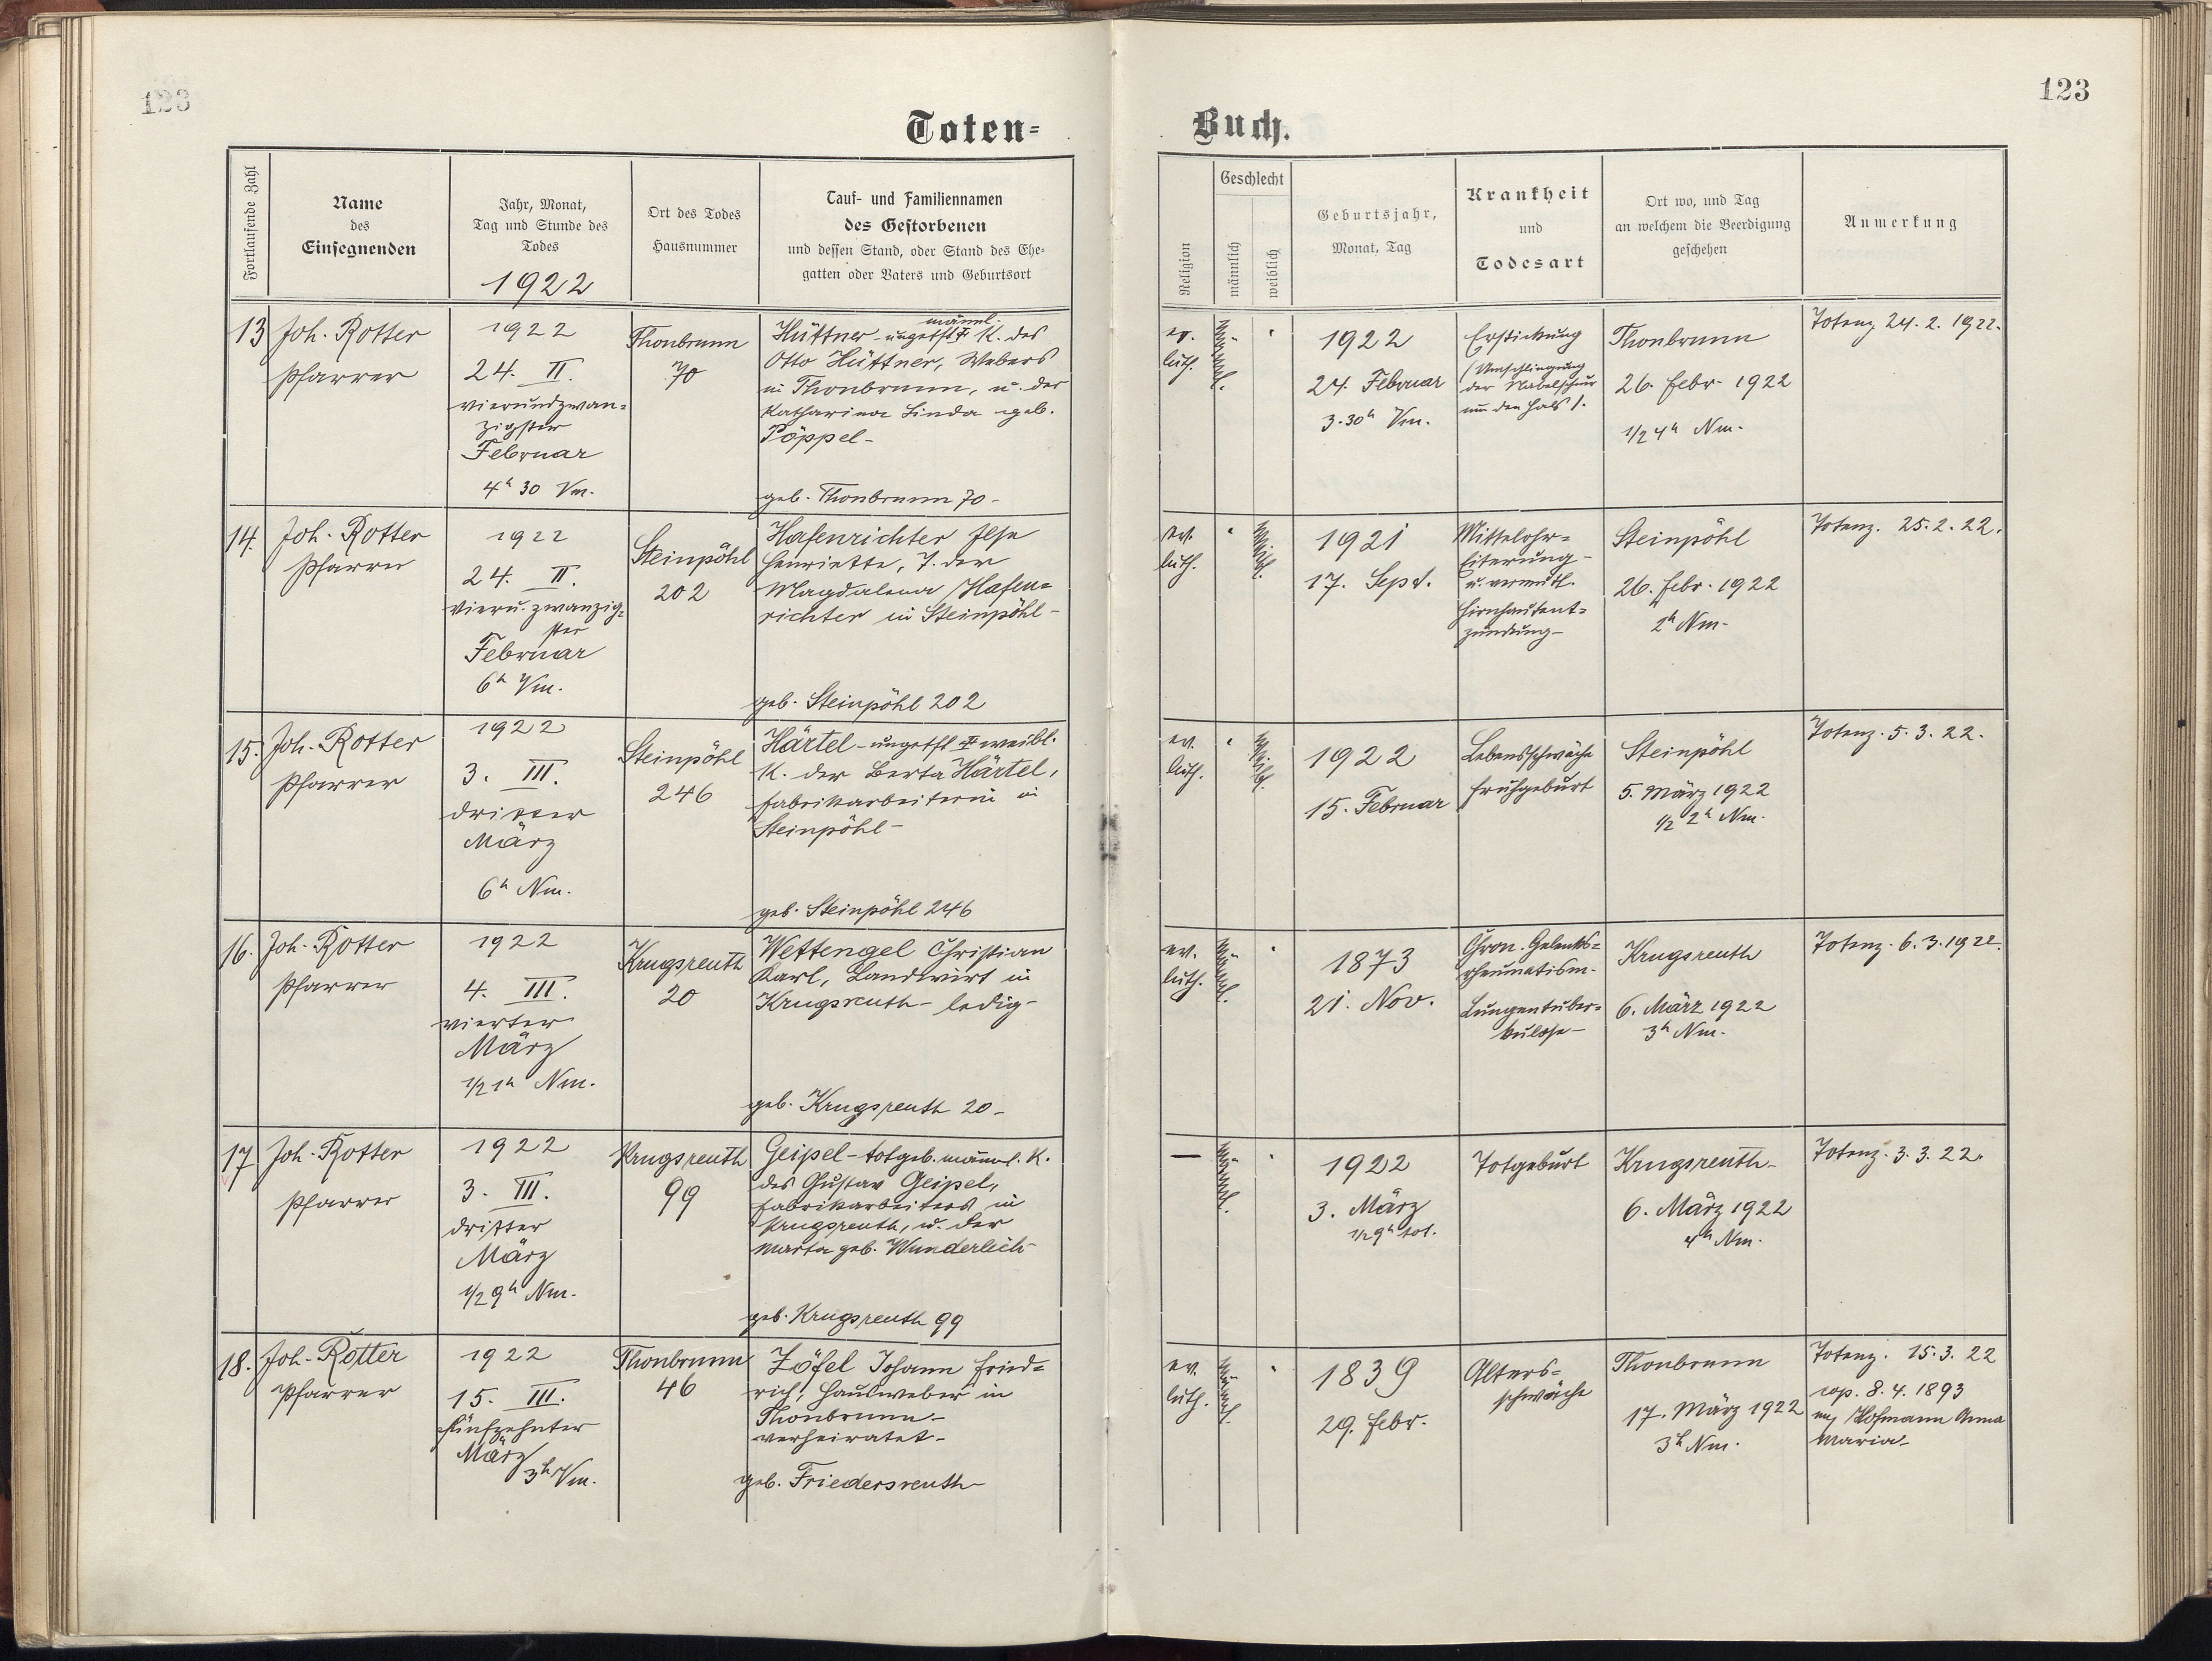 123
123
Toten=
Buch.
Fortlaufende Zahl
Name
des
Einsegnenden
Jahr, Monat,
Tag und Stunde des
Todes
1922
Ort des Todes
Hausnummer
Tauf- und Familiennamen
des Gestorbenen
und dessen Stand, oder Stand des Ehe-
gatten oder Vaters und Geburtsort
Religion
Geschlecht
männlich
weiblich
Geburtsjahr,
Monat, Tag
Krankheit
und
Todesart
Ort wo, und Tag
an welchem die Beerdigung
geschehen
Anmerkung
13
Joh. Rotter
Pfarrer
1922
24. II.
vierundzwan=
zigster
Februar
4h 30 Vm.
Thonbrunn
70
männl.
Hüttner - ungetft K. des
Otto Hüttner, Webers
in Thonbrunn, u. der
Katharina Linda geb.
Pöppel-
geb. Thonbrunn 70-
ev.
luth.
männl.
1922
24. Februar
3.30h Vm.
Erstickung
(Umschlingung
der Nabelschnur
um den Hals).
Thonbrunn
26. Febr. 1922
1/2 4h Nm.
Totenz 24. 2. 1922.
14.
Joh. Rotter
Pfarrer
1922
24. II.
vieru. zwanzig=
ster
Februar
6h Vm.
Steinpöhl
202
Hafenrichter Ilse
Henriette, T. der
Magdalena Hafen=
richter in Steinpöhl-
geb. Steinpöhl 202
ev.
luth.
weibl.
1921
17. Sept.
Mittelohr=
eiterung-
u. vermutl.
Hirnhautent=
zündung-
Steinpöhl
26. Febr. 1922
2h Nm.
Totenz. 25. 2. 22.
15.
Joh. Rotter
Pfarrer
1922
3. III.
dritter
März
6h Nm.
Steinpöhl
246
Härtel - ungetft weibl.
K. der Berta Härtel,
Fabrikarbeiterin in
Steinpöhl-
geb. Steinpöhl 246
ev.
luth.
weibl.
1922
15. Februar
Lebensschwäche
Frühgeburt
Steinpöhl
5. März 1922
1/2 2h Nm.
Totenz. 5. 3. 22.
16.
Joh. Rotter
Pfarrer
1922
4. III.
vierter
März
1/2 1h Nm.
Krugsreuth
20
Wettengel Christian
Karl, Landwirt in
Krugsreuth - ledig-
geb. Krugsreuth 20-
ev.
luth.
männl.
1873
21. Nov.
Chron. Gelenks=
rheumatism.
Lungentuber=
kulose-
Krugsreuth
6. März 1922
3h Nm.
Totenz. 6. 3. 1922.
17
Joh. Rotter
Pfarrer
1922
3. III.
dritter
März
1/2 9h Nm.
Krugsreuth
99
Geipel - totgeb. männl. K.
des Gustav Geipel,
Fabrikarbeiters in
Krugsreuth, u. der
Marta geb. Wunderlich-
geb. Krugsreuth 99
—
männl.
1922
3. März
1/2 9h tot.
Totgeburt
Krugsreuth-
6. März 1922
4h Nm.
Totenz. 3. 3. 22.
18.
Joh. Rotter
Pfarrer
1922
15. III.
fünfzehnter
März
3h Vm.
Thonbrunn
46
Zöfel Johann Fried=
rich, Hausweber in
Thonbrunn.-
verheiratet-
geb. Friedersreuth-
ev.
luth.
männl.
1839
29. Febr.
Alters=
schwäche
Thonbrunn
17. März 1922
3h Nm.
Totenz. 15. 3. 22
cop. 8. 4. 1893
mj Hofmann Anna
Maria-